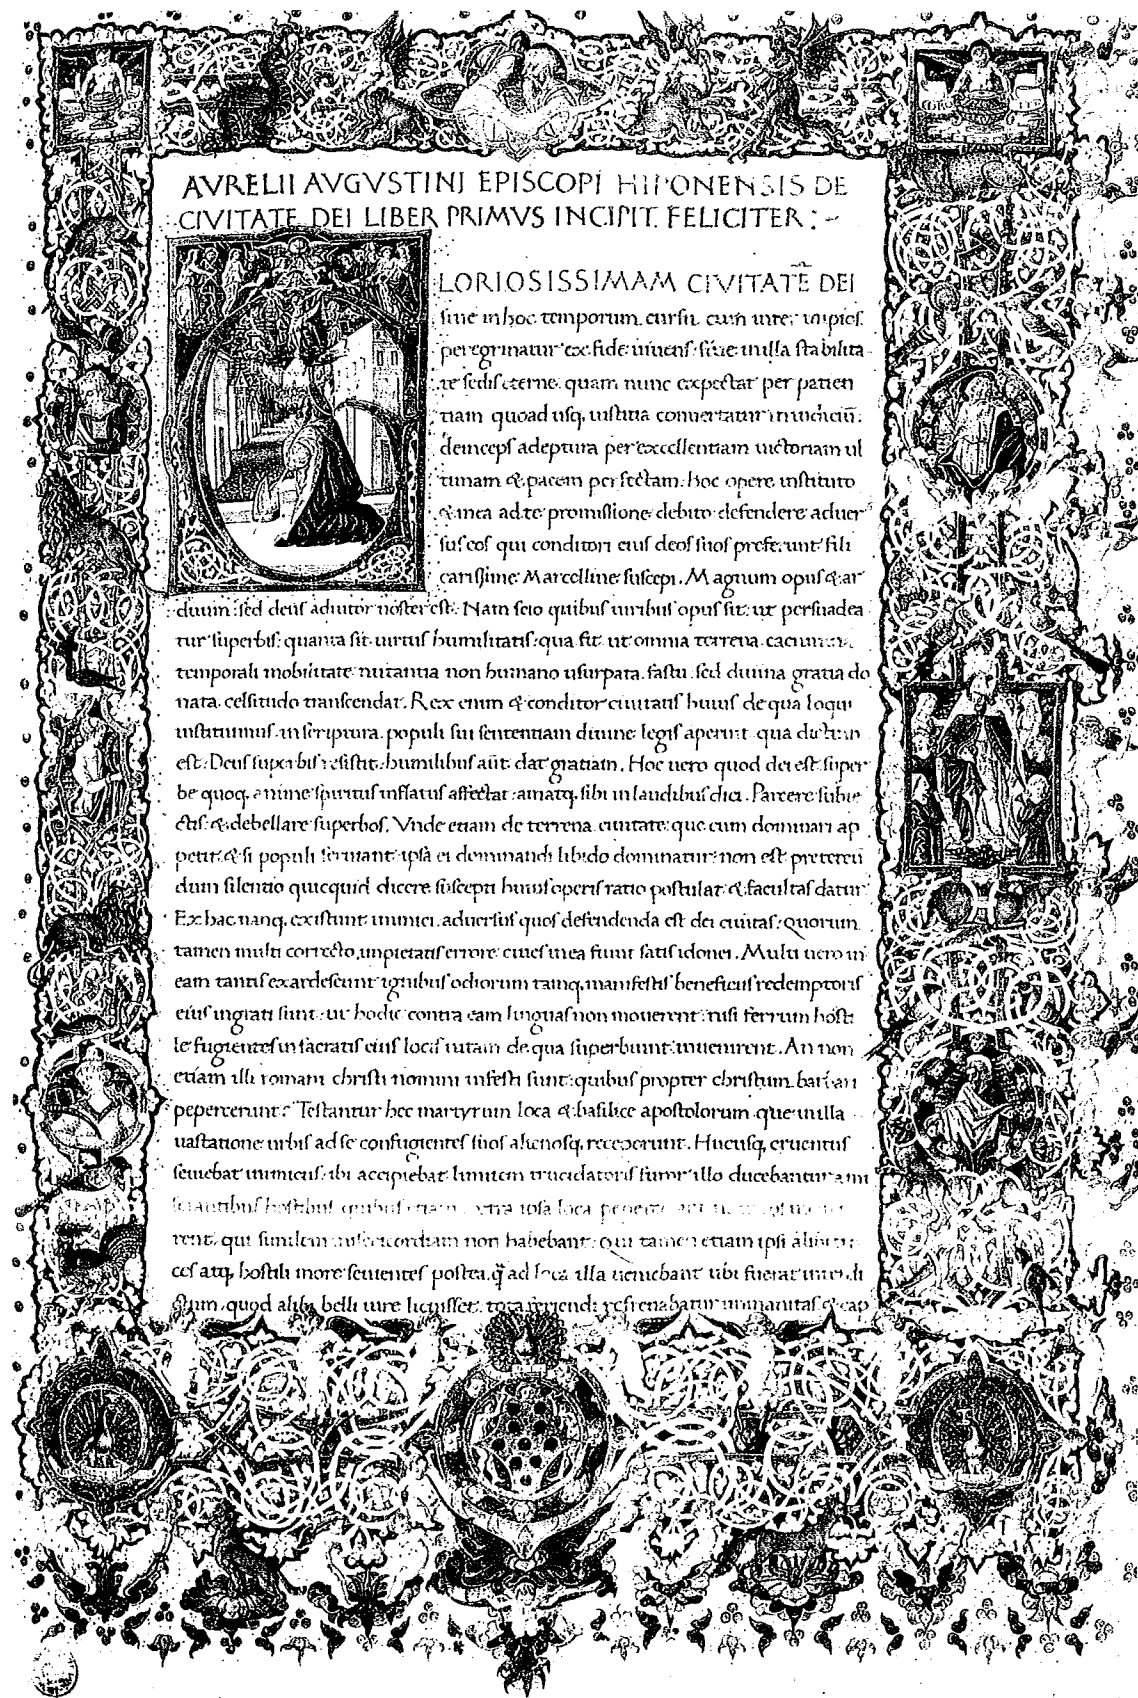 AVRELII AVGVSTINI EPISCOPI HIPONENSIS DE
CIVITATE DEI LIBER PRIMVS INCIPIT FELICITER :~
GLORIOSISSIMAM CIVITATĒ DEI
siue in hoc temporum cursu cum inter impios
peregrinatur ex fide uiuens: siue in illa stabilita
te sedis eterne quam nunc expectat per patien
tiam quoad usq, iustitia conuertatur in iudiciū:
deinceps adeptura per excellentiam uictoriam ul
timam & pacem perfectam: hoc opere instituto
& mea ad te promissione debito defendere aduer
sus eos qui conditori eius deos suos preferunt fili
carissime Marcelline suscepi. Magnum opus & ar
duum: sed deus adiutor noster est. Nam scio quibus uiribus opus sit: ut persuadea
tur superbis: quanta sit uirtus humilitatis: qua fit ut omnia terrena cacumina
temporali mobilitate nutantia non humano usurpata fastu: sed diuina gratia do
nata celsitudo transcendat. Rex enim & conditor ciuitatis huius de qua loqui
instituimus in scriptura populi sui sententiam diuine legis aperuit qua dictum
est: Deus superbis resistit: humilibus aūt dat gratiam. Hoc uero quod dei est: super
be quoq, anime spiritus inflatus affectat: amatq, sibi in laudibus dici. Parcere subie
ctis: & debellare superbos. Vnde etiam de terrena ciuitate: que cum dominari ap
petit: & si populi seruiant: ipsa ei dominandi libido dominatur: non est pretereū
dum silentio quicquid dicere suscepti huius operis ratio postulat: & facultas datur
Ex hac nanq, existunt inimici aduersus quos defendenda est dei ciuitas: quorum
tamen multi correcto impietatis errore ciues in ea fiunt satis idonei. Multi uero in
eam tantis exardescunt ignibus odiorum tamq, manifestis beneficiis redemptoris
eius ingrati sunt: ut hodie contra eam linguas non mouerent: nisi ferrum hosti
le fugientes in sacratis eius locis uitam de qua superbiunt: inuenirent. An non
etiam illi romani christi nomini infesti sunt: quibus propter christum barbari
pepercerunt? Testantur hec martyrum loca & basilice apostolorum que in illa
uastatione urbis ad se confugientes suos alienosq, receperunt. Hucusq, cruentus
seuiebat inimicus: ibi accipiebat limitem trucidatoris furor illo ducebantur a mi
serantibus hostibus quibus etiam extra ipsa loca
rent: qui similem misericordiam non habebant. Qui tamen etiam ipsi alibi
ces atq, hostili more seuientes postea q̄ ad loca illa ueniebant ubi fuerat interdi
ctum quod alibi belli iure licuisset: tota feriendi refrenabatur immanitas & cap